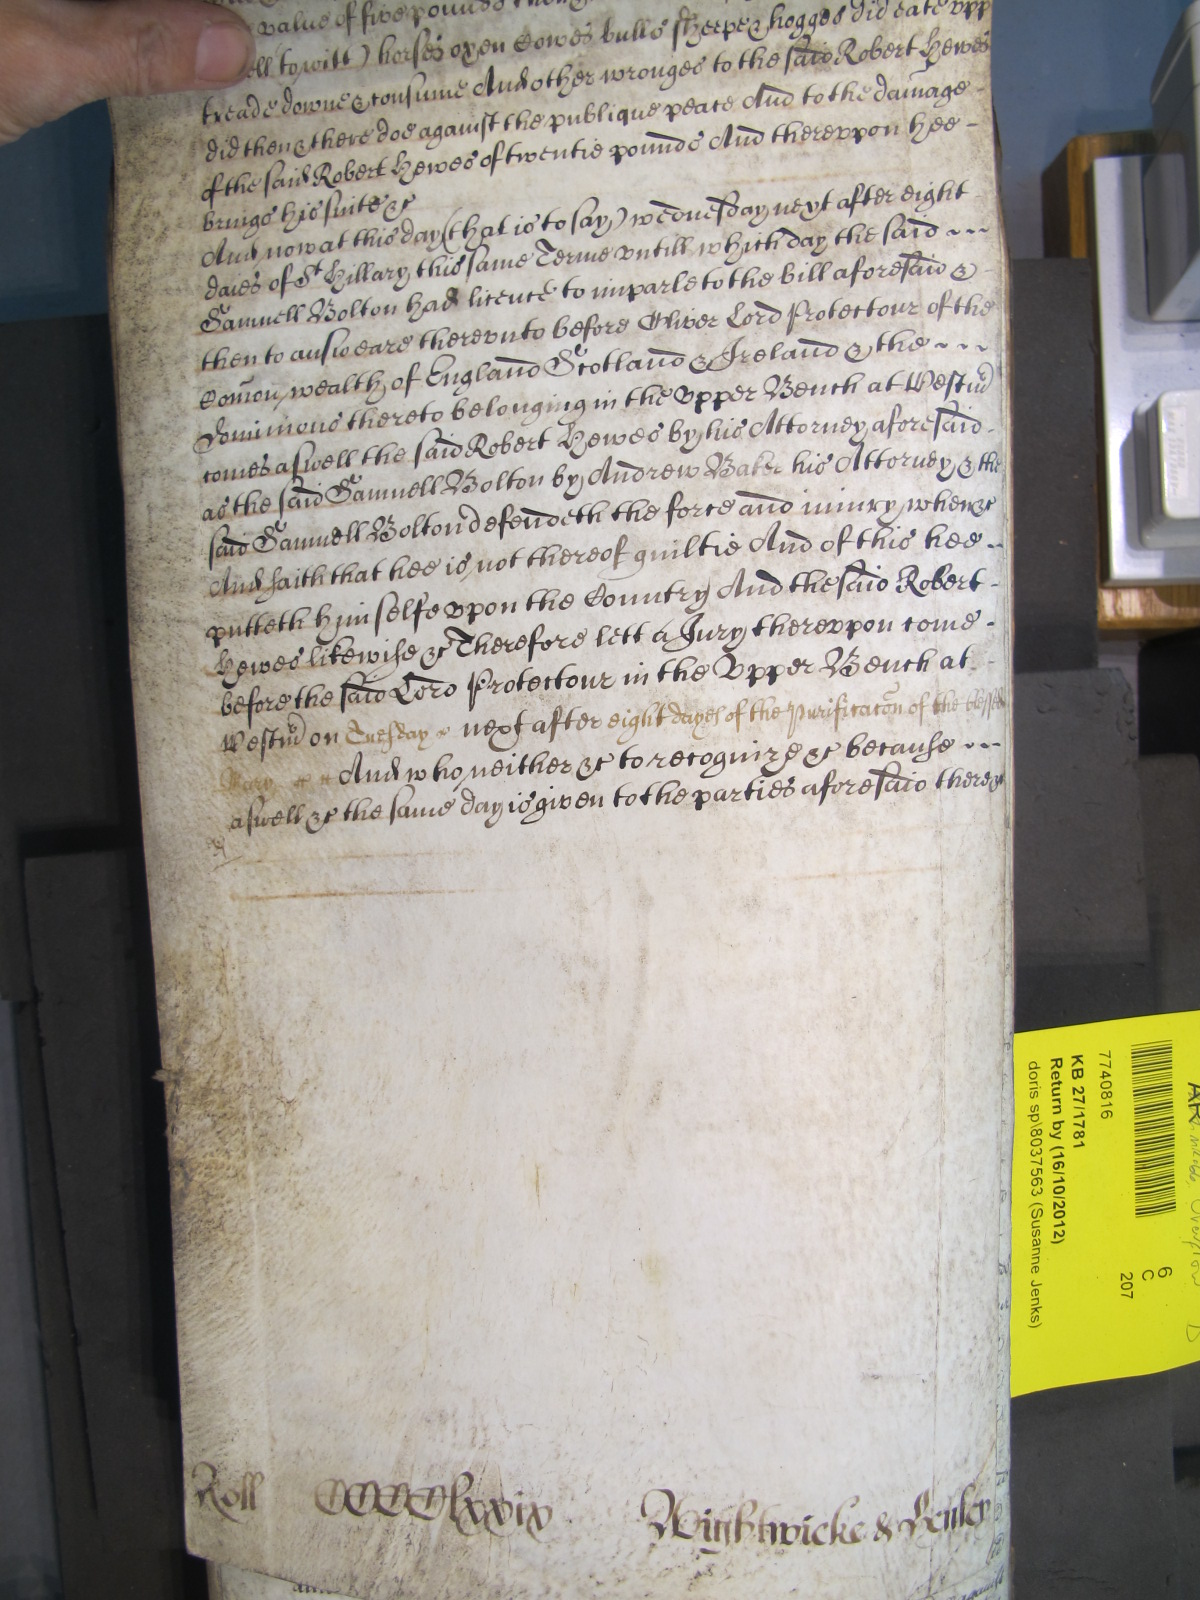 value of five pounds
to witt) horses oxen Cowes bulls sheepe & hogges did eate upp
treade downe & consume And other wronges to the said Robert Hewes
did then & there doe against the publique peace And to the damage
of the said Robert Hewes of twentie pounds And thereuppon hee
brings his suite &c
And now at this day (that is to say) wednesday next after eight
daies of St Hillary this same Terme untill which day the said
Samuell Bolton had licence to imparle to the bill aforesaid &
then to answeare thereunto before Oliver Lord Protectour of the
Comon wealth of England Scotland & Ireland & the
dominions thereto belonging in the Upper Bench at Westm
comes aswell the said Robert Hewes by his Attorney aforesaid
as the said Samuell Bolton by Andrew Baker his Attorney & the
said Samuell Bolton defendeth the force and iniury when &c
And saith that hee is not thereof guiltie And of this hee
putteth himselfe upon the Country And the said Robert
Hewes likewise &c Therefore lett a Jury thereuppon come
before the said Lord Protectour in the Upper Bench at
Westm on Tuesday next after eight dayes of the Purificacon of the blessed
Mary And who neither &c to recognize &c because
aswell &c the same day is given to the parties aforesaid there &c
Roll CCCClxxix Wightwicke &
7740816
KB 27/1781
Return by (16/10/2012)
doris sp\8037563 (Susanne Jenks)
6
C
207